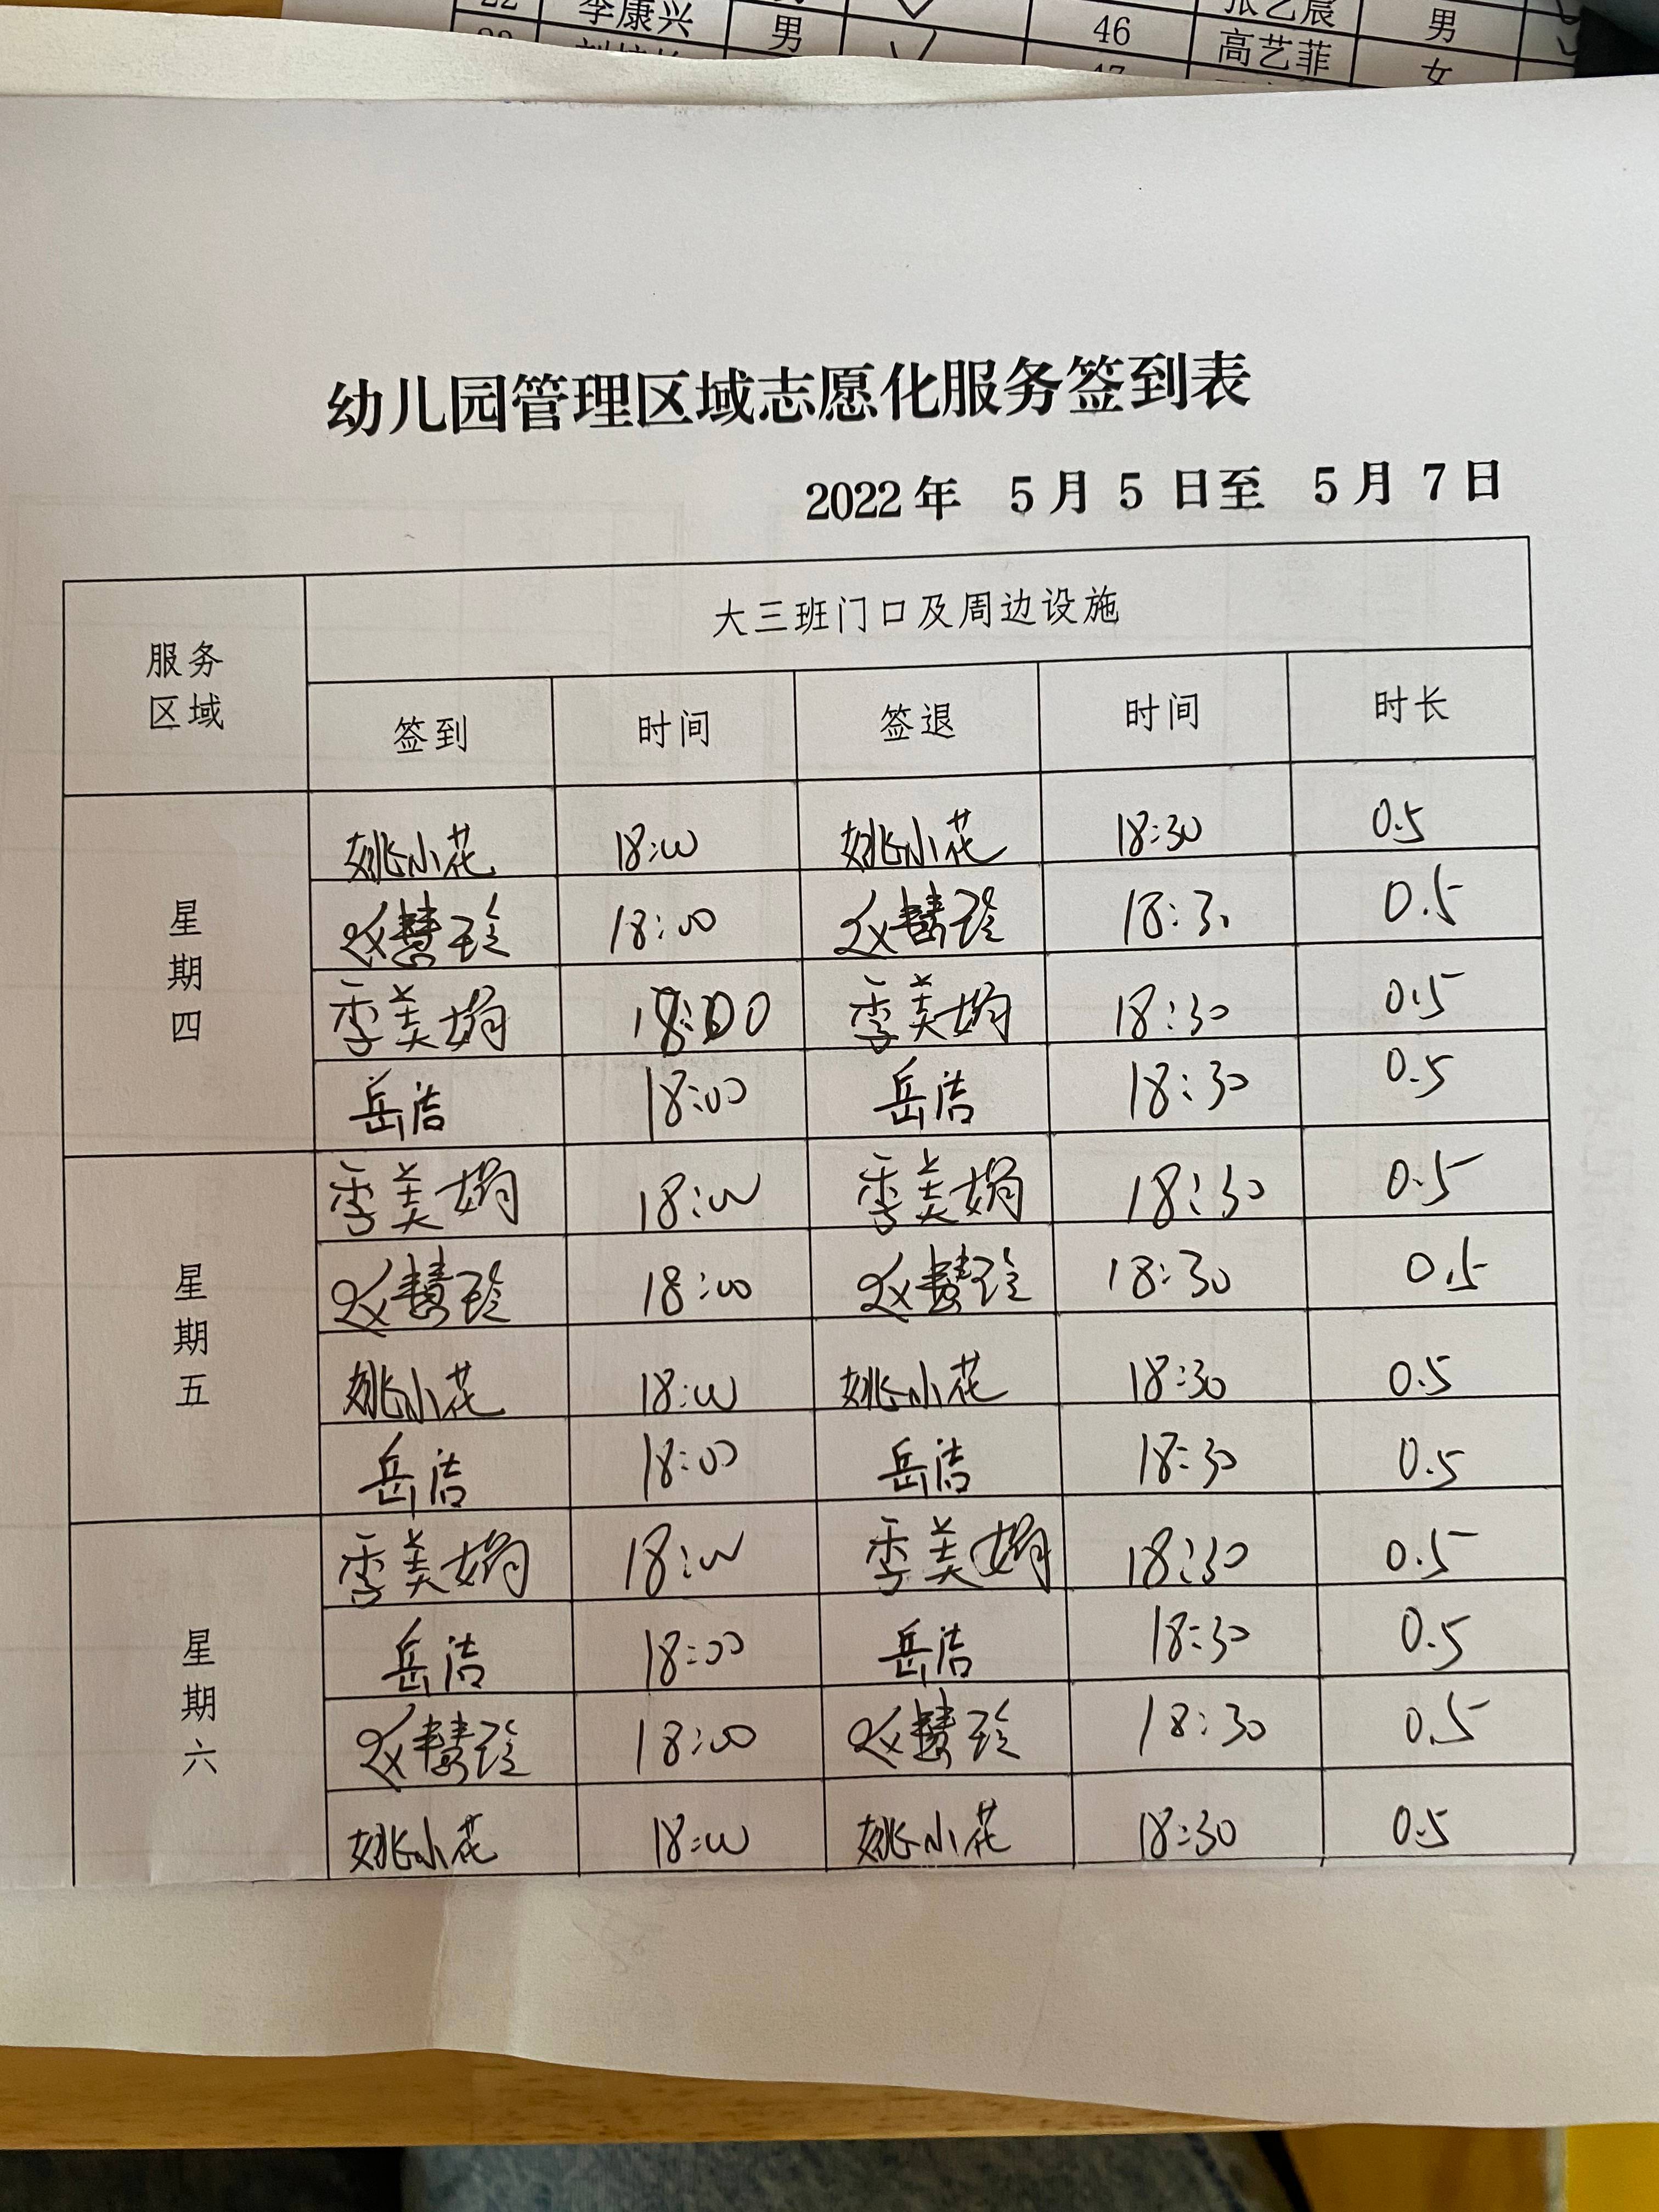 22 李康兴 男 46 张艺晨 男
高艺菲 女
幼儿园管理区域志愿化服务签到表
2022年 5月5日至 5月7日
服务区域 大三班门口及周边设施
签到 时间 签退 时间 时长
星期四 姚小花 18:00 姚小花 18:30 0.5
赵慧玲 18:00 赵慧玲 18:30 0.5
季美娟 18:00 季美娟 18:30 0.5
岳洁 18:00 岳洁 18:30 0.5
星期五 季美娟 18:00 季美娟 18:30 0.5
赵慧玲 18:00 赵慧玲 18:30 0.5
姚小花 18:00 姚小花 18:30 0.5
岳洁 18:00 岳洁 18:30 0.5
星期六 季美娟 18:00 季美娟 18:30 0.5
岳洁 18:00 岳洁 18:30 0.5
赵慧玲 18:00 赵慧玲 18:30 0.5
姚小花 18:00 姚小花 18:30 0.5